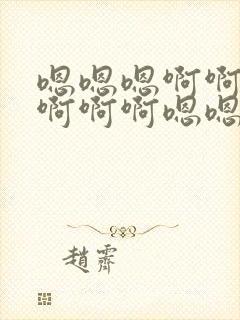 嗯嗯嗯啊啊
啊啊啊嗯嗯
趙霽